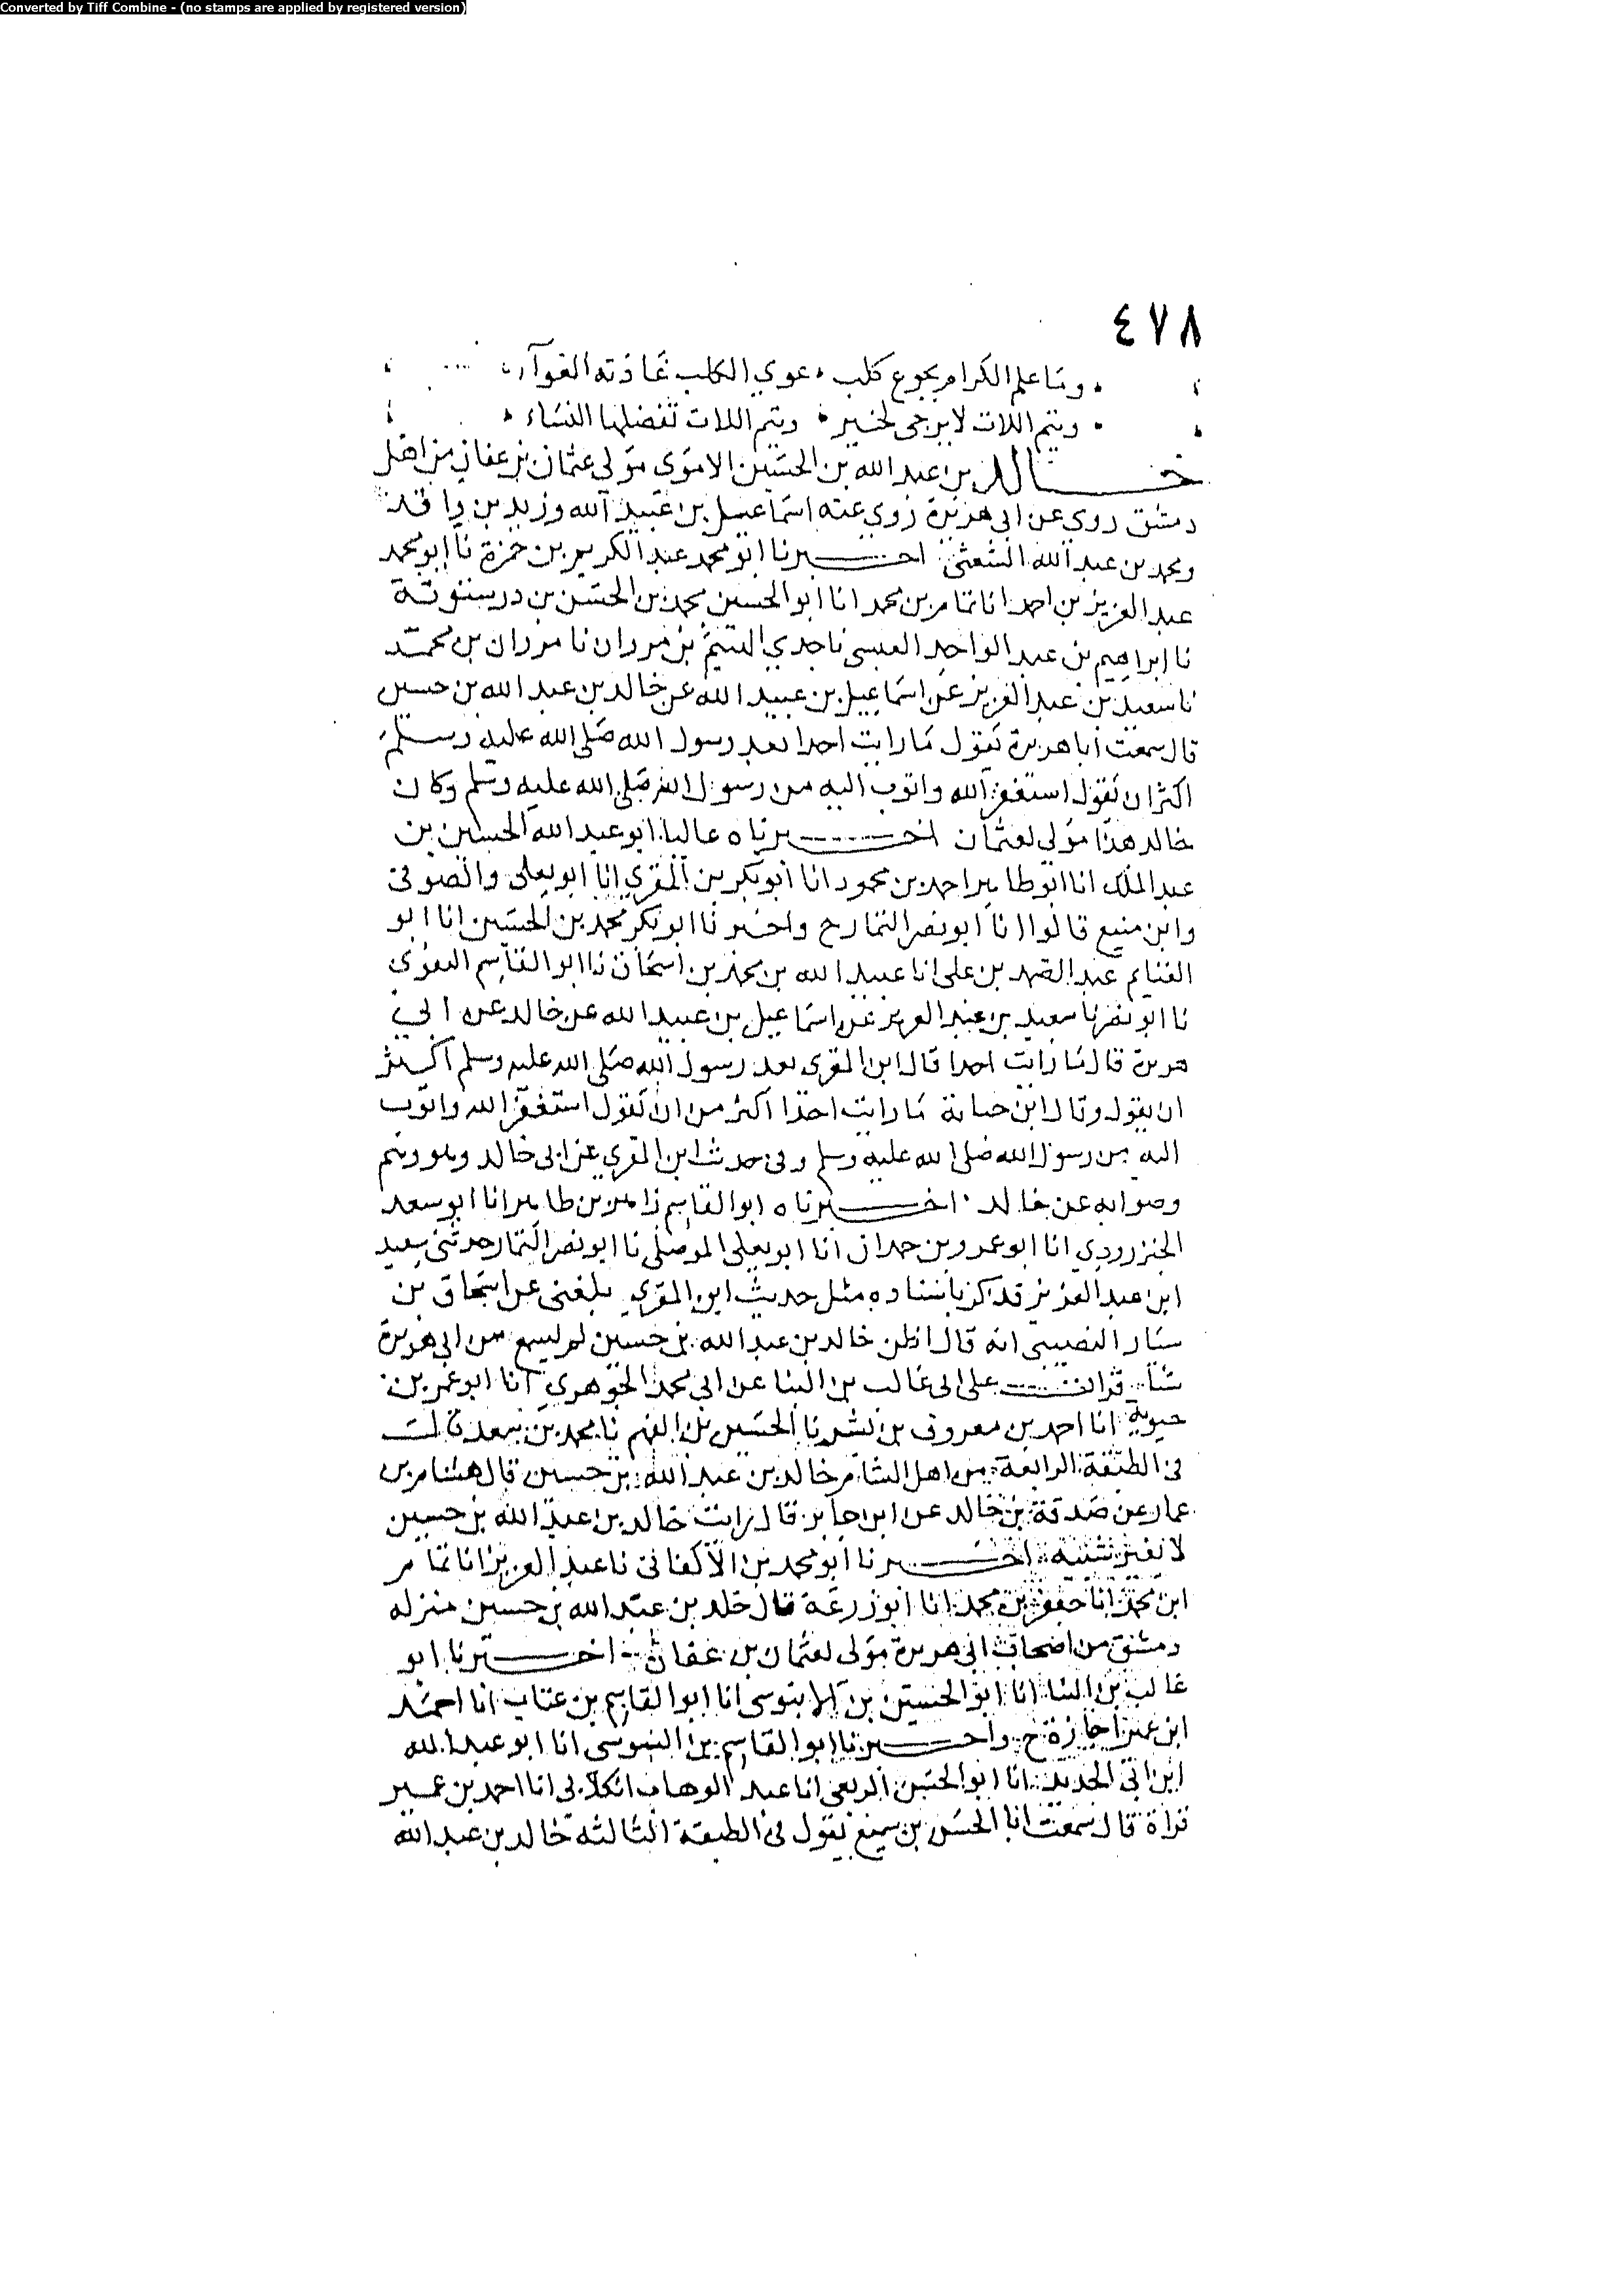 Converted by Tiff Combine - (no stamps are applied by registered version)
٤٧٨
وما علم الكرام بجوع كلب عوي الكلب عادته
وتيم اللات لا يرجى لخير وتيم اللات تفضلها النساء
خالد بن عبد الله بن الحسين الاموى مولى عثمان بن عفان من اهل
دمشق روي عن ابى هريرة روي عنه اسماعيل بن عبيد الله وزيد بن واقد
ومحمد بن عبد الله الشعثى اخبرنا ابو محمد عبد الكريم بن حمزة نا ابو محمد
عبد العزيز بن احمد انا تمام بن محمد انا ابو الحسين محمد بن الحسن بن درستوية
نا ابراهيم بن عبد الواحد العبسى نا جدي الهيثم بن مروان نا مروان بن محمد
نا سعيد بن عبد العزيز عن اسماعيل بن عبيد الله عن خالد بن عبد الله بن حسين
قال سمعت ابا هريرة يقول ما رايت احدا بعد رسول الله صلى الله عليه وسلم
اكثر ان يقول استغفر الله واتوب اليه من رسول الله صلى الله عليه وسلم وكان
خالد هذا مولى لعثمان اخبرناه عاليا ابو عبد الله الحسين بن
عبد الملك انا ابو طاهر احمد بن محمود انا ابو بكر بن المقري انا ابو يعلى والصوفى
وابن منيع قالوا انا ابو نصر التمار ح واخبرنا ابو بكر محمد بن الحسين انا ابو
الغنايم عبد الصمد بن على انا عبيد الله بن محمد بن اسحاق نا ابو القاسم البغوى
نا ابو نصر نا سعيد بن عبد العزيز عن اسماعيل بن عبيد الله عن خالد عن ابي
هريرة قال ما رايت احدا قال ابن المقرى بعد رسول الله صلى الله عليه وسلم اكثر
ان يقول وقال ابن حبابة ما رايت احدا اكثر من ان يقول استغفر الله واتوب
اليه من رسول الله صلى الله عليه وسلم وفى حديث ابن المقري عن ابى خالد وهو وهم
وصوابه عن خالد اخبرناه ابو القاسم زاهر بن طاهر انا ابو سعد
الجنزرودي انا ابو عمرو بن حمدان انا ابو يعلى الموصلى نا ابو نصر التمار حدثنى سعيد
ابن عبد العزيز فذكر باسناده مثل حديث ابن المقري بلغنى عن اسحاق بن
سيار النصيبى انه قال اظن خالد بن عبد الله بن حسين لم يسمع من ابى هريرة
شيا قرات على ابى غالب بن البنا عن ابى محمد الجوهري انا ابو عمر بن
حيوية انا احمد بن معروف بن بشر نا الحسين بن الفهم نا محمد بن سعد قال
فى الطبقة الرابعة من اهل الشام خالد بن عبد الله بن حسين قال هشام بن
عمار عن صدقة بن خالد عن ابن جابر قال رايت خالد بن عبد الله بن حسين
لا يغير شيبه اخبرنا ابو محمد بن الاكفانى نا عبد العزيز انا تمام
ابن محمد انا جعفر بن محمد انا ابو زرعة قال خلد بن عبد الله بن حسين منزله
دمشق من اصحاب ابى هريرة مولى لعثمان بن عفان اخبرنا ابو
غالب بن البنا انا ابو الحسين بن الابنوسى انا ابو القاسم بن عتاب انا احمد
ابن عمير اجازة ح واخبرنا ابو القاسم بن السوسى انا ابو عبد الله
ابن ابى الحديد انا ابو الحسن الربعى انا عبد الوهاب الكلابى انا احمد بن عمير
قراة قال سمعت ابا الحسن بن سميع يقول فى الطبقة الثالثه خالد بن عبد الله